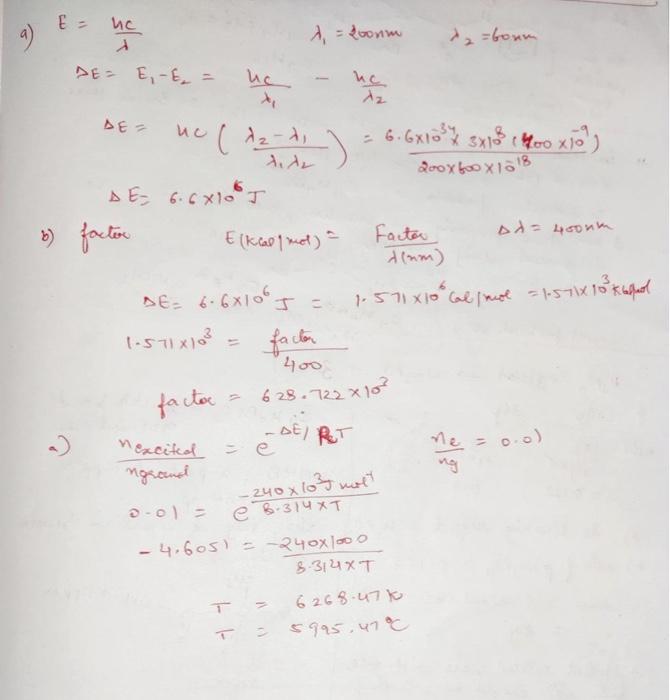 a) E = hc/λ λ₁ = 200nm λ₂ = 60nm
ΔE = E₁ - E₂ = hc/λ₁ - hc/λ₂
ΔE = hc ( (λ₂ - λ₁)/(λ₁λ₂) ) = (6.6×10⁻³⁴ × 3×10⁸ (400 ×10⁻⁹))/(200×600×10⁻¹⁸)
ΔE = 6.6×10⁶ J
b) factor E (kcal/mol) = Factor/λ(nm) Δλ = 400nm
ΔE = 6.6×10⁶ J = 1.571×10⁶ cal/mol = 1.571×10³ kcal/mol
1.571×10³ = factor/400
factor = 628.722 ×10³
a) nexcited/nground = e^(-ΔE/RT) ne/ng = 0.01
0.01 = e^(-240×10³J mol⁻¹/8.314×T)
-4.6051 = -240×1000/8.314×T
T = 6268.47 K
T = 5995.47 °C